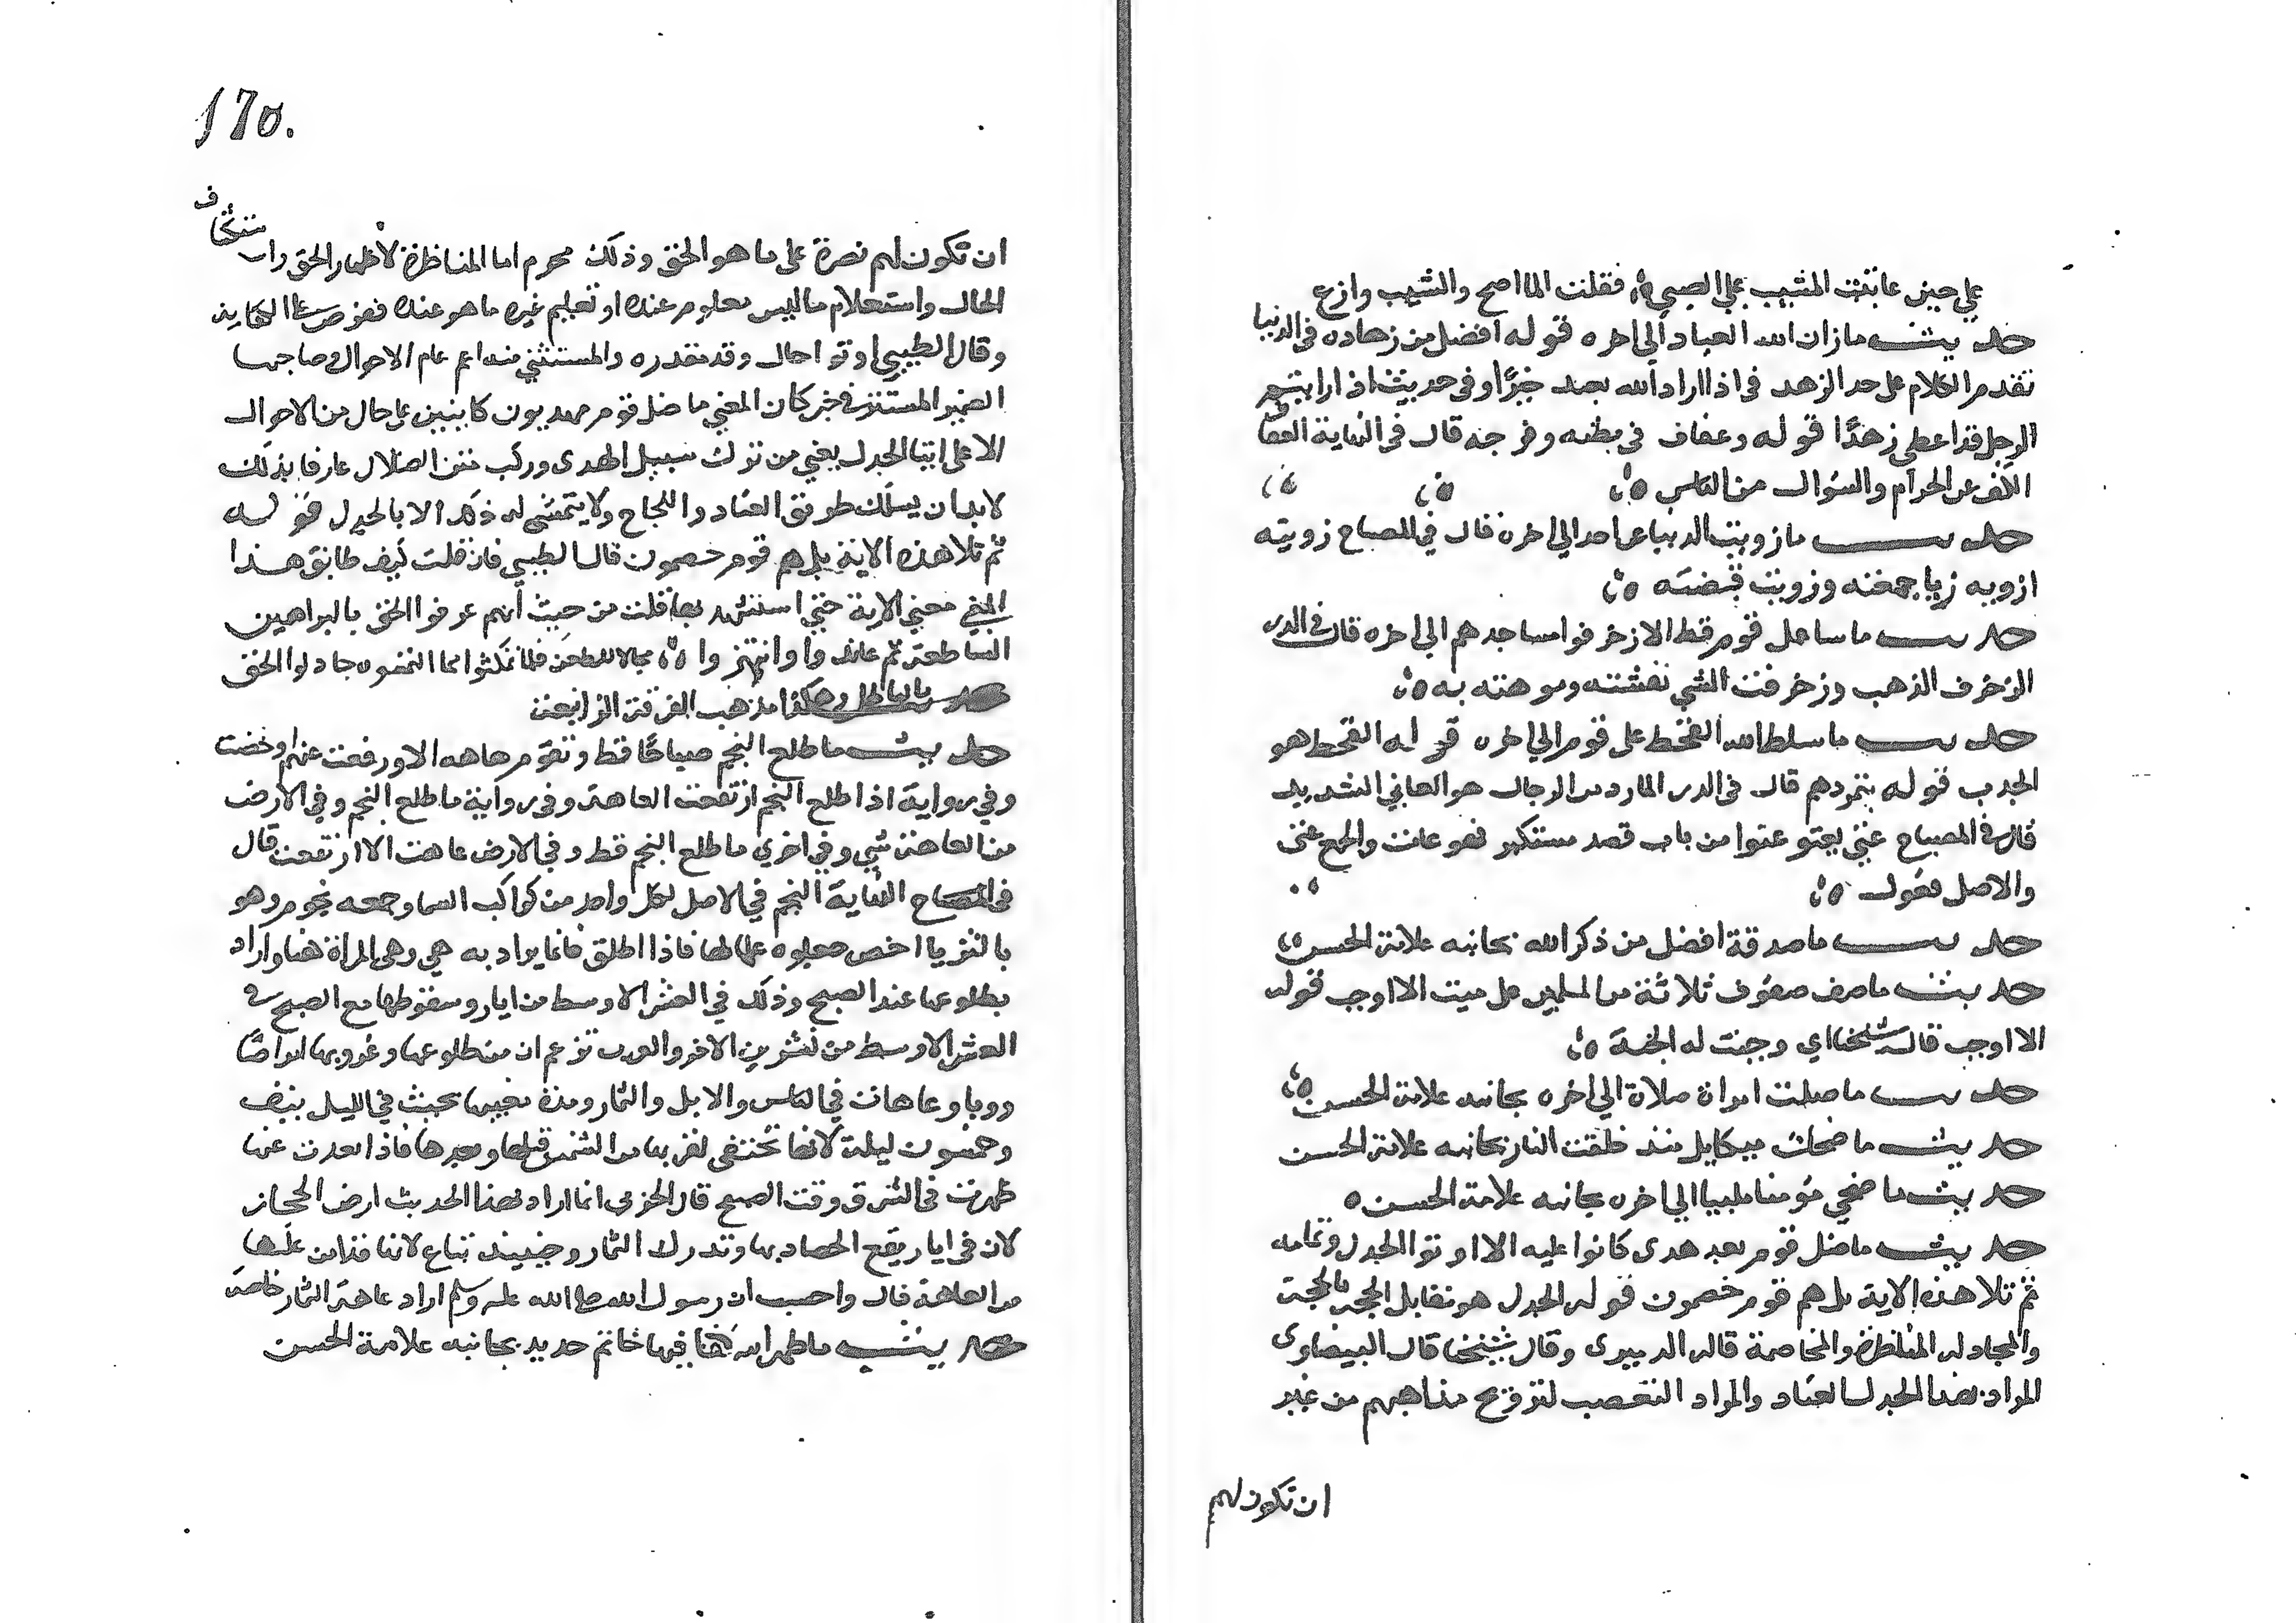 على حين عاتبت المشيب على الصبي فقلت الما اصح والشيب وازع
حديث ما زان الله العباد الى اخره قوله افضل من زهاده في الدنيا
تقدم الكلام على حد الزهد في اذا اراد الله بعبد خيرًا وفي حديث اذا رايتم
الرجل قد اعطي زهدًا قوله وعفاف في بطنه وفرجه قال في النهاية العفاف
الكف عن الحرام والسؤال من الناس
حديث ما زويت الدنيا عن احد الى اخره قال في المصباح زويته
ازويه زيا جمعته وزويت قبضته
حديث ما ساء عمل قوم قط الا زخرفوا مساجدهم الى اخره قال في الدر
الزخرف الذهب وزخرفت الشي نقشته وموهته به
حديث ما سلط الله القحط على قوم الى اخره قوله القحط هو
الجدب قوله بتمردهم قال في الدر المارد من الرجال هو العاتي الشديد
قال في المصباح عتي يعتو عتوا من باب قعد مستكبر فهو عات والجمع عتى
والاصل فعول
حديث ما صدقة افضل من ذكر الله بجانبه علامة الحسن
حديث ما صف صفوف ثلاثة من المسلمين على ميت الا اوجب قوله
الا اوجب قال شيخنا اي وجبت له الجنة
حديث ما صلت امراة صلاة الى اخره بجانبه علامة الحسن
حديث ما ضحك ميكايل منذ خلقت النار بجانبه علامة الحسن
حديث ما ضحي مؤمنا ملبيا الى اخره بجانبه علامة الحسن
حديث ما ضل قوم بعد هدى كانوا عليه الا اوتوا الجدل وتمامه
ثم تلا هذه الاية بل هم قوم خصمون قوله الجدل هو مقابل الحجة بالحجة
والمجادله المناظرة والمخاصمة قاله الدميرى وقال شيخنا قال البيضاوى
المراد بهذا الجدل العناد والمراد التعصب لترويج مذاهبهم من غير
ان تكون لهم
170.
ان تكون لهم نصرة على ما هو الحق وذلك محرم اما المناظرة لاظهار الحق واستكشاف
الحال واستعلام ما ليس معلوم عنده او تعليم غيره ما هو عنده ففرض على الكفاية
وقال الطيبي اوتوا حال وقد مقدره والمستثنى منه اعم عام الاحوال وصاحبها
الضمير المستتر في خبر كان المعني ما ضل قوم مهديون كاينين على حال من الاحوال
الا على ايتا الجدل يعني من ترك سبيل الهدى وركب متن الضلال عارفا بذلك
لا بد ان يسلك طريق العناد واللجاج ولا يتمشى له ذلك الا بالجدل قوله
ثم تلا هذه الاية بل هم قوم خصمون قال الطيبي فان قلت كيف طابق هذا
المعني معني الاية حتي استشهد بها قلت من حيث انهم عرفوا الحق بالبراهين
الساطعة ثم عاندوا وانتهزوا مجالا للطعن فلما تمكنوا مما التمسوه جادلوا الحق
بالباطل وهكذا مذهب الفرقة الزايغة
حديث ما طلع النجم صباحًا قط وتقوم عاهه الا ورفعت عنهم او خفت
وفي رواية اذا طلع النجم ارتفعت العاهة وفي رواية ما طلع النجم وفي الارض
من العاهة شي وفي اخري ما طلع النجم قط وفي الارض عاهة الا ارتفعت قال
في النهاية النجم في الاصل لكل واحد من كواكب السما وجمعه نجوم وهو
بالثريا اخص جعلوه علما لها فاذا اطلق فانما يراد به هي وهي المراة هنا واراد
بطلوعها عند الصبح وذلك في العشر الاوسط من ايار وسقوطها مع الصبح في
العشر الاوسط من تشرين الاخر والعرب تزعم ان من طلوعها وغروبها امراضًا
ووبا وعاهات في الناس والابل والثمار ومدة مغيبها بحيث في الليل بنيف
وخمسون ليلة لانها تختفي لقربها من الشمس قبلها وبعدها فاذا بعدت عنها
ظهرت في الشرق وقت الصبح قال الحربي انما اراد بهذا الحديث ارض الحجاز
لان في ايار يقع الحصاد بها وتدرك الثمار وحينيد تباع لانها قد امن عليها
من العاهة قال واحسب ان رسول الله صلى الله عليه وسلم اراد عاهة الثمار خاصة
حديث ما طهر الله كفا فيها خاتم حديد بجانبه علامة الحسن